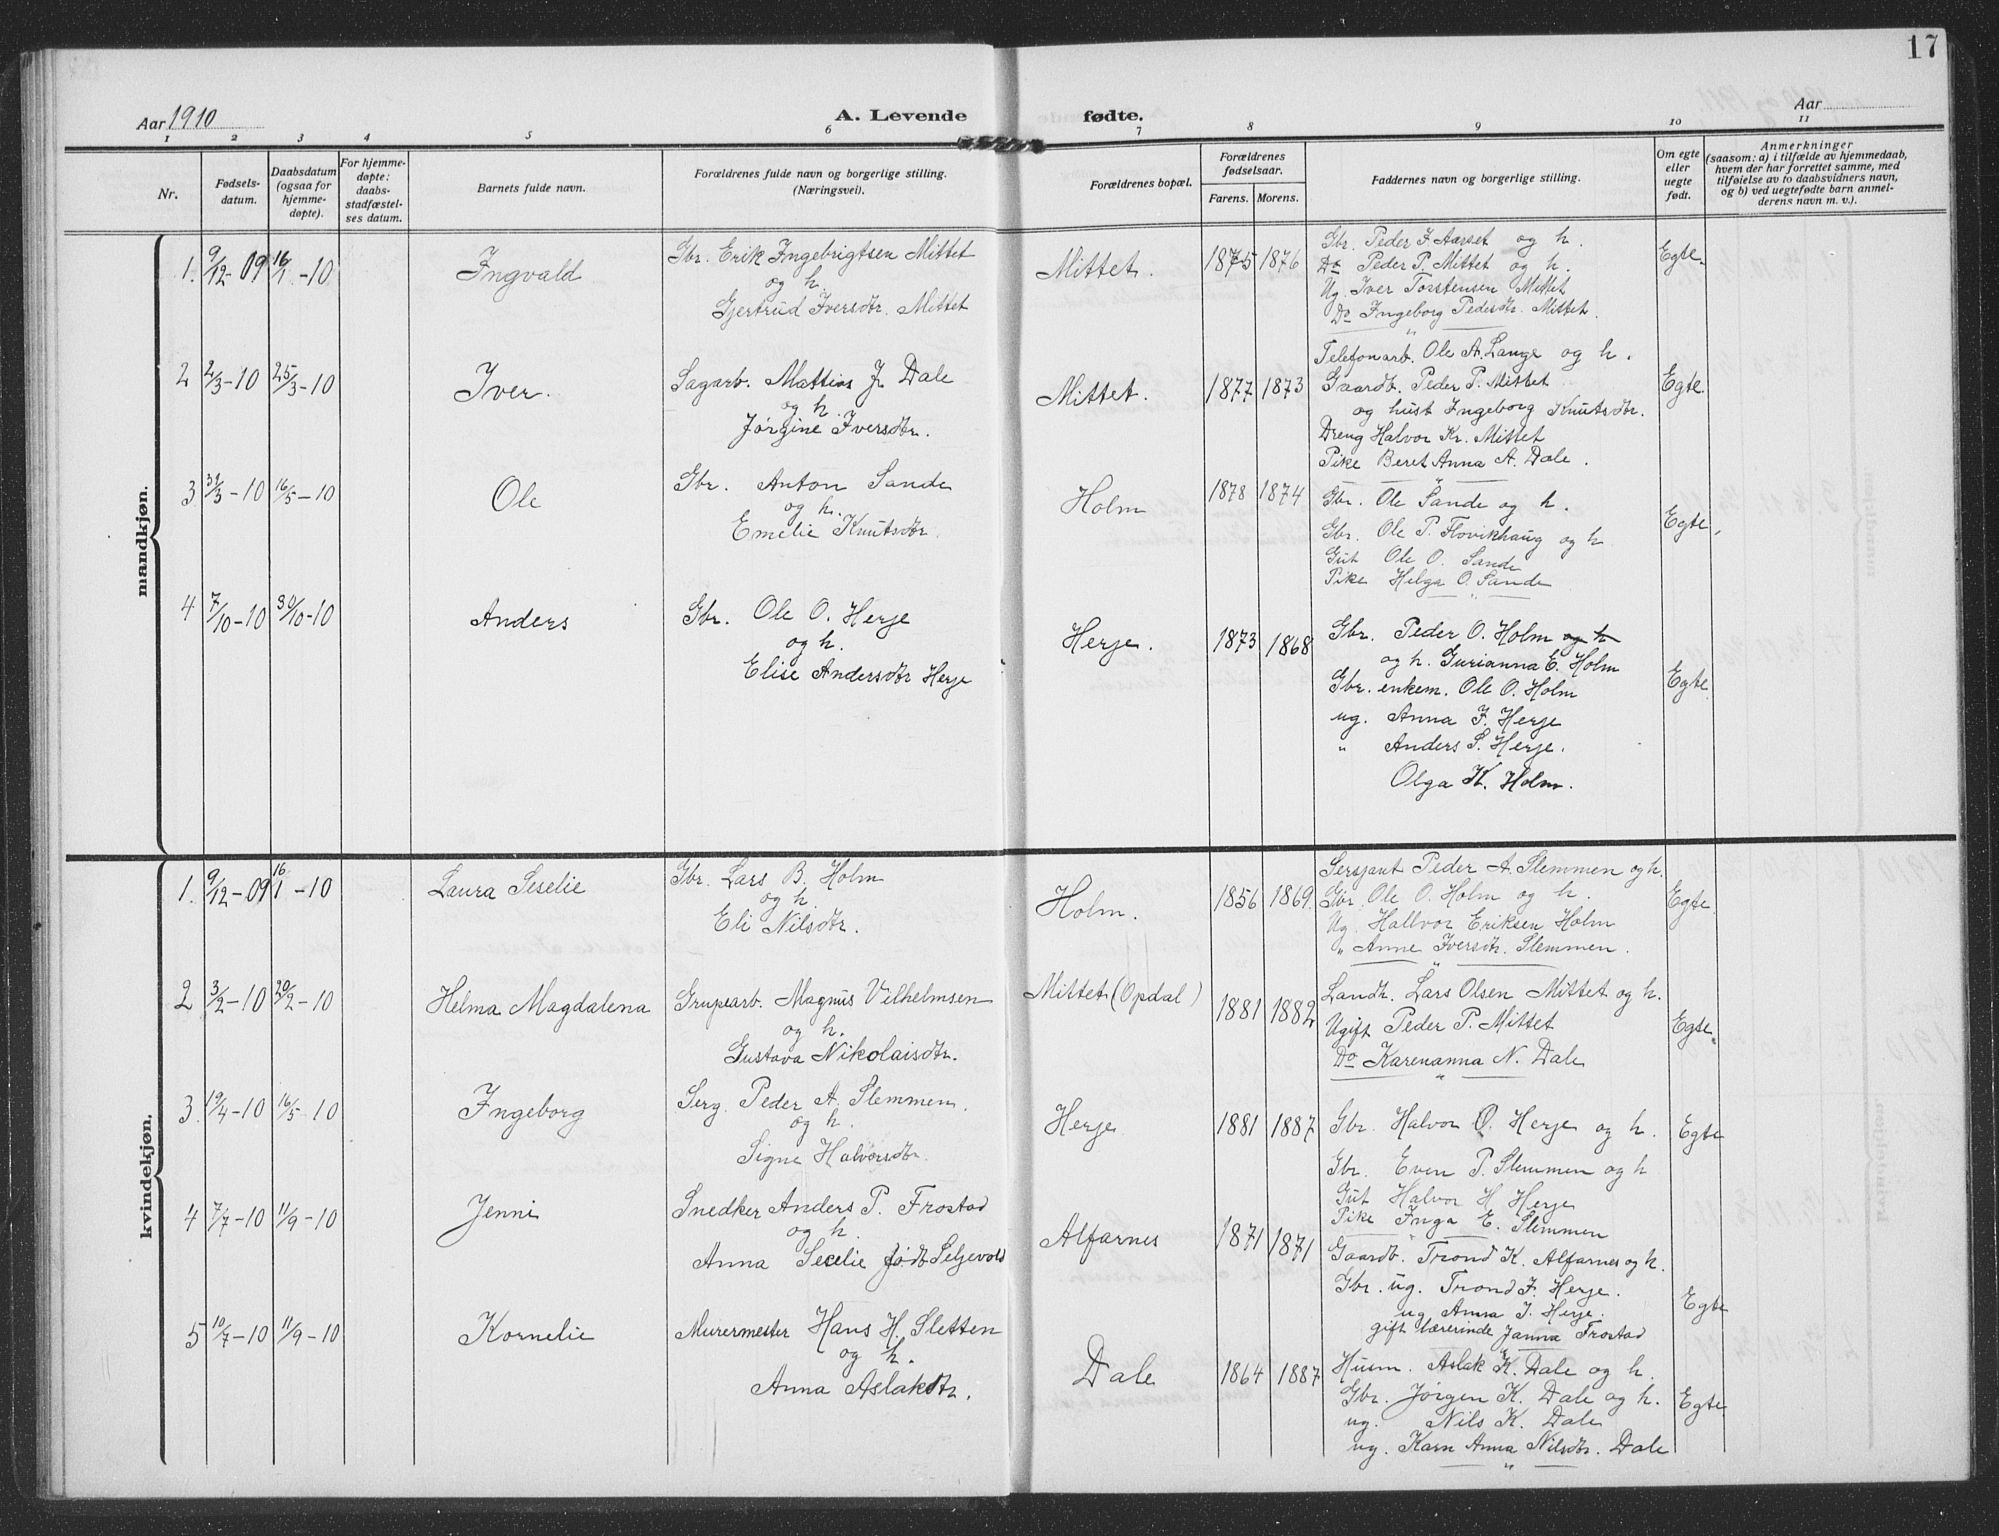 17
Aar 1910
A. Levende
fødte.
Aar
1 2 3 4 5 6 7 8 9 10 11
Nr.
Fødsels-
datum.
Daabsdatum
(ogsaa for
hjemme-
døpte).
For hjemme-
døpte:
daabs-
stadfæstel-
ses datum.
Barnets fulde navn.
Forældrenes fulde navn og borgerlige stilling.
(Næringsvei).
Forældrenes bopæl.
Forældrenes
fødselsaar.
Farens. Morens.
Faddernes navn og borgerlige stilling.
Om egte
eller
uegte
født.
Anmerkninger
(saasom: a) i tilfælde av hjemmedaab,
hvem der har forrettet samme, med
tilføielse av to daabsvidners navn,
og b) ved uegtefødte barn anmel-
derens navn m. v.).
mandkjøn.
1. 9/12-09 16/1-10 Ingvald
Gbr. Erik Ingebrigtsen Mittet
og h.
Gjertrud Iversdtr. Mittet
Mittet. 1875 1876
Gbr. Peder J. Aarset og h.
Do Peder P. Mittet og h.
Ug. Iver Torstensen Mittet
Do Ingeborg Pedersdtr. Mittet.
Egte.
2 2/3-10 25/3-10 Iver.
Sagarb. Mattias J. Dale
og h.
Jørgine Iversdtr.
Mittet. 1877 1873
Telefonarb. Ole A. Lange og h.
Gaardb. Peder P. Mittet
og hust Ingeborg Knutsdtr.
Dreng Halvor Kr. Mittet
Pike Beret Anna A. Dale.
Egte
3 31/3-10 16/5-10 Ole
Gbr. Anton Sande
og h.
Emelie Knutsdtr.
Holm 1878 1874
Gbr. Ole Sande og h.
Gbr. Ole P. Flovikhaug og h
Gut Ole O. Sande
Pike Helga O. Sande
Egte,
4 7/10-10 30/10-10 Anders
Gbr. Ole O. Herje
og h.
Elise Andersdtr Herje
Herje. 1873 1868
Gbr. Peder O. Holm og h
og h. Gurianna E. Holm
Gbr. enkem. Ole O. Holm
ug. Anna J. Herje
" Anders S. Herje.
Olga K. Holm.
Egte
kvindekjøn.
1. 9/12-09 16/1-10 Laura Seselie
Gbr. Lars B. Holm
og h.
Eli Nilsdtr.
Holm. 1856 1869.
Sersjant Peder A. Slemmen og h.
Gbr. Ole O. Holm og h.
Ug. Hallvor Eriksen Holm
" Anne Iversdtr. Slemmen.
Egte
2 3/2-10 20/2-10 Helma Magdalena
Grupearb. Magnus Vilhelmsen
og h.
Gustava Nikolaisdtr.
Mittet (Opdal) 1881 1882
Landh. Lars Olsen Mittet og h.
Ugift Peder P. Mittet
Do Karenanna N. Dale
Egte.
3 19/4-10 16/5-10 Ingeborg
Serg. Peder A. Slemmen.
og h.
Signe Halvorsdtr.
Herje 1881 1887
Gbr. Halvor O. Herje og h.
Gbr. Even P. Slemmen og h
Gut Halvor H Herje
Pike Inga E. Slemmen
Egte
4 7/7-10 11/9-10 Jenni
Snedker Anders P. Frostad
og h.
Anna Secelie født Seljevold
Alfarnes 1871 1871
Gaardb. Trond K. Alfarnes og h.
Gbr. ug. Trond J. Herje.
ug Anna J. Herje.
gift lærerinde Janna Frostad
Egte
5 10/7-10 11/9-10 Kornelie
Murermester Hans H. Sletten
og h.
Anna Aslaksdtr.
Dale 1864 1887
Husm. Aslak K. Dale og h.
Gbr. Jørgen K. Dale og h.
ug. Nils K. Dale
ug. Karn Anna Nilsdtr. Dale
Egte